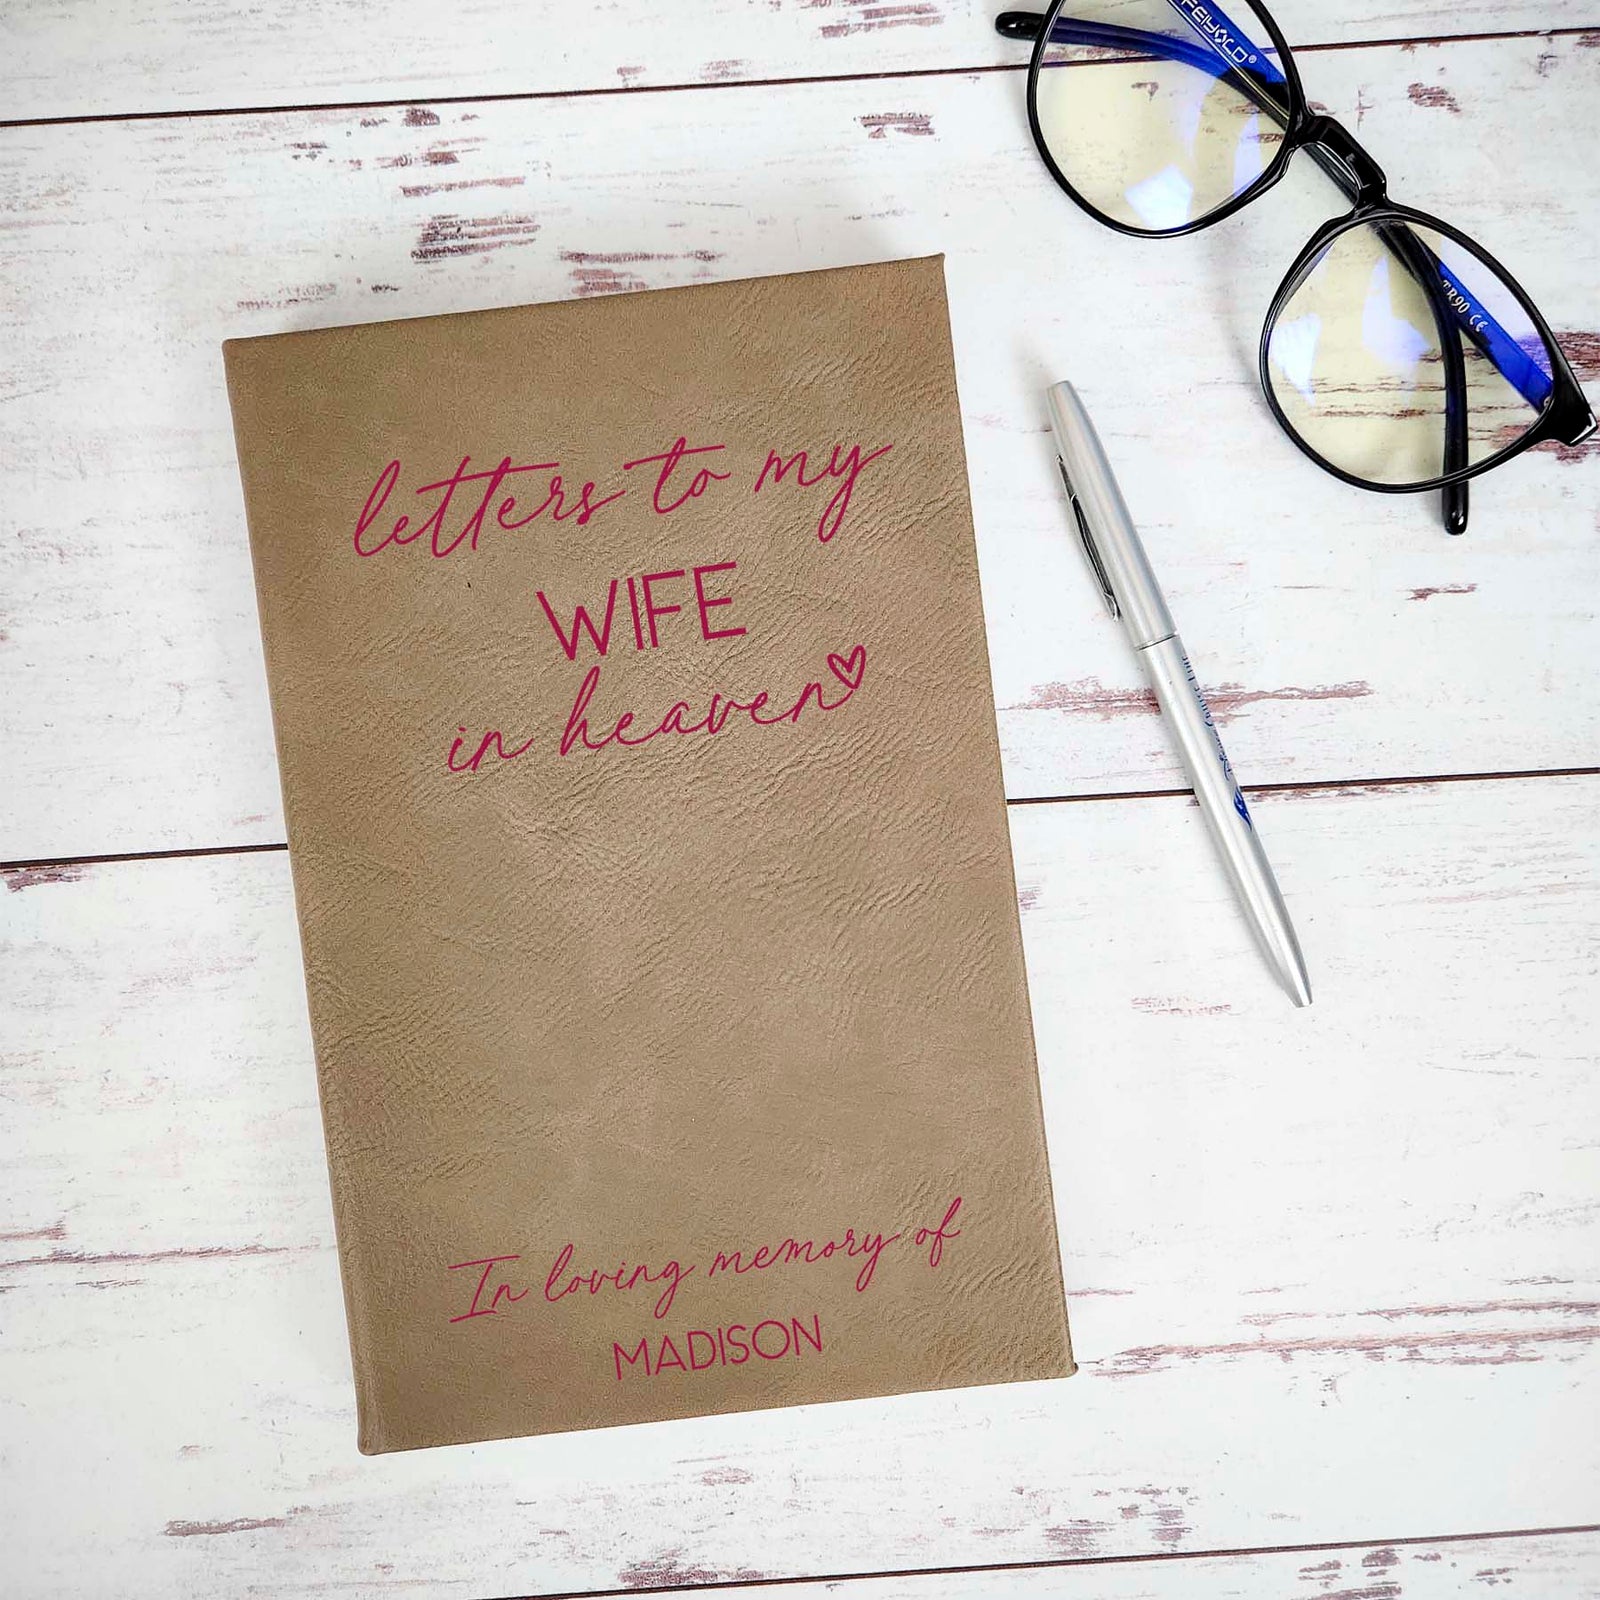 FEIYOLD®
TR90 CE
letters to my
WIFE
in heaven
In loving memory of
MADISON